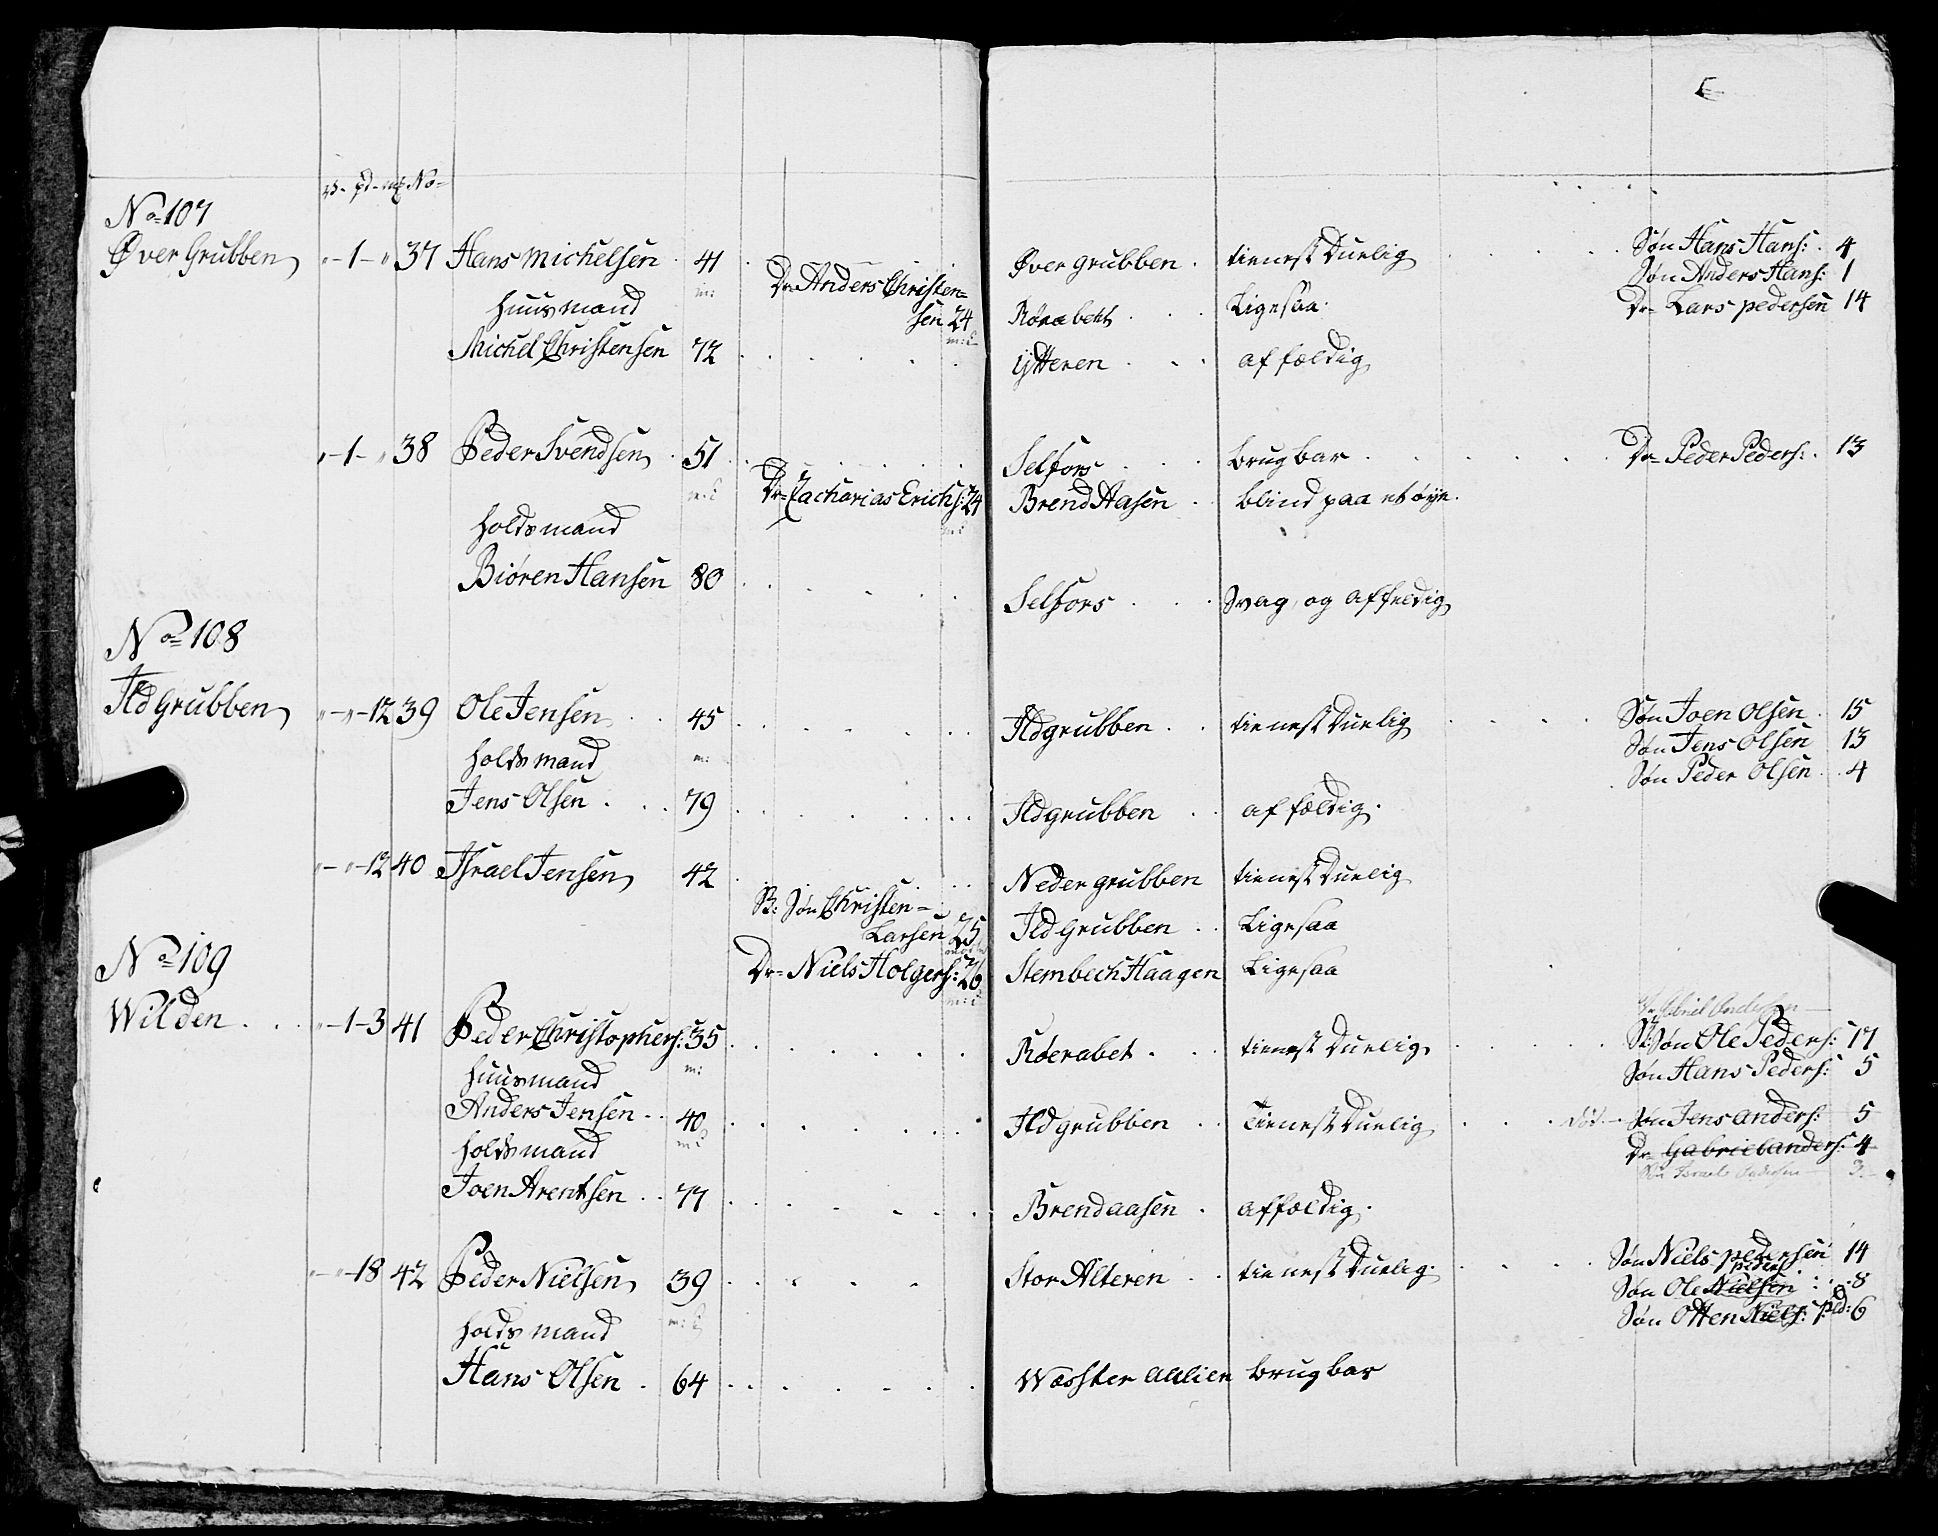 No= 107
Øver Grubben "-1-" 37 Hans Michelsen 41 Øver grubben tienest Duelig Søn Hans Hans: 4
Søn Anders Hans: 1
m: Dr= Anders Christen=
sen 24 Røra beht Ligesaa Dr= Lars pedersen 14
Huusmand
Michel Christensen 72 Ytteren affældig
"-1-" 38 Peder Svendsen 51 Selfors brugbar Dr= Peder Peders: 13
Dr= Zacharias Erichs: 24 Brend Aasen blind paa et øye.
holdsmand
Biøren Hansen 80 Selfors Svag, og affeldig
No= 108
Ild Grubben "-"-12 39 Ole Jensen 45 Ildgrubben tienest Duelig Søn Joen Olsen 15
Søn Jens Olsen 13
holdsmand m: Søn Peder Olsen 4
Jens Olsen 79 Ildgrubben affældig.
"-"-12 40 Israel Jensen 42 Neder grubben tienest Duelig
St: Søn Christen=
Larsen 25 Ild Grubben Ligesaa
Dr= Niels Holgers: 26 Stembech Haagen Ligesaa
No= 109
Wilden "-1-3 41 Peder Christophers: 35 Røerabet tienest Duelig St: Søn Ole Peders: 17
huusmand m: Søn Hans Peders: 5
Anders Jensen 40 Ildgrubben Tienest Duelig død Søn Jens anders: 5
holdsmand Dr= Gabriel anders: 4
Søn Israel Andersen 3
Joen Arentsen 77 Brendaasen affældig.
"-"-18 42 Peder Nielsen 39 Stor Alteren tienest Duelig Søn Niels pedersen 14
peders:
Søn Ole Nielsen 8
Søn Otten Niels: ped: 6
holdsmand
Hans Olsen 64 Wæsster Allien brugbar